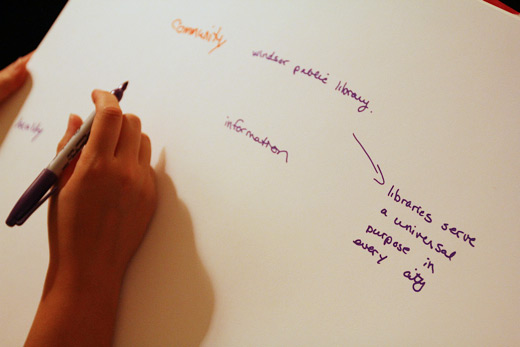 community
windsor public library.
information
libraries serve
a universal
purpose in
every city